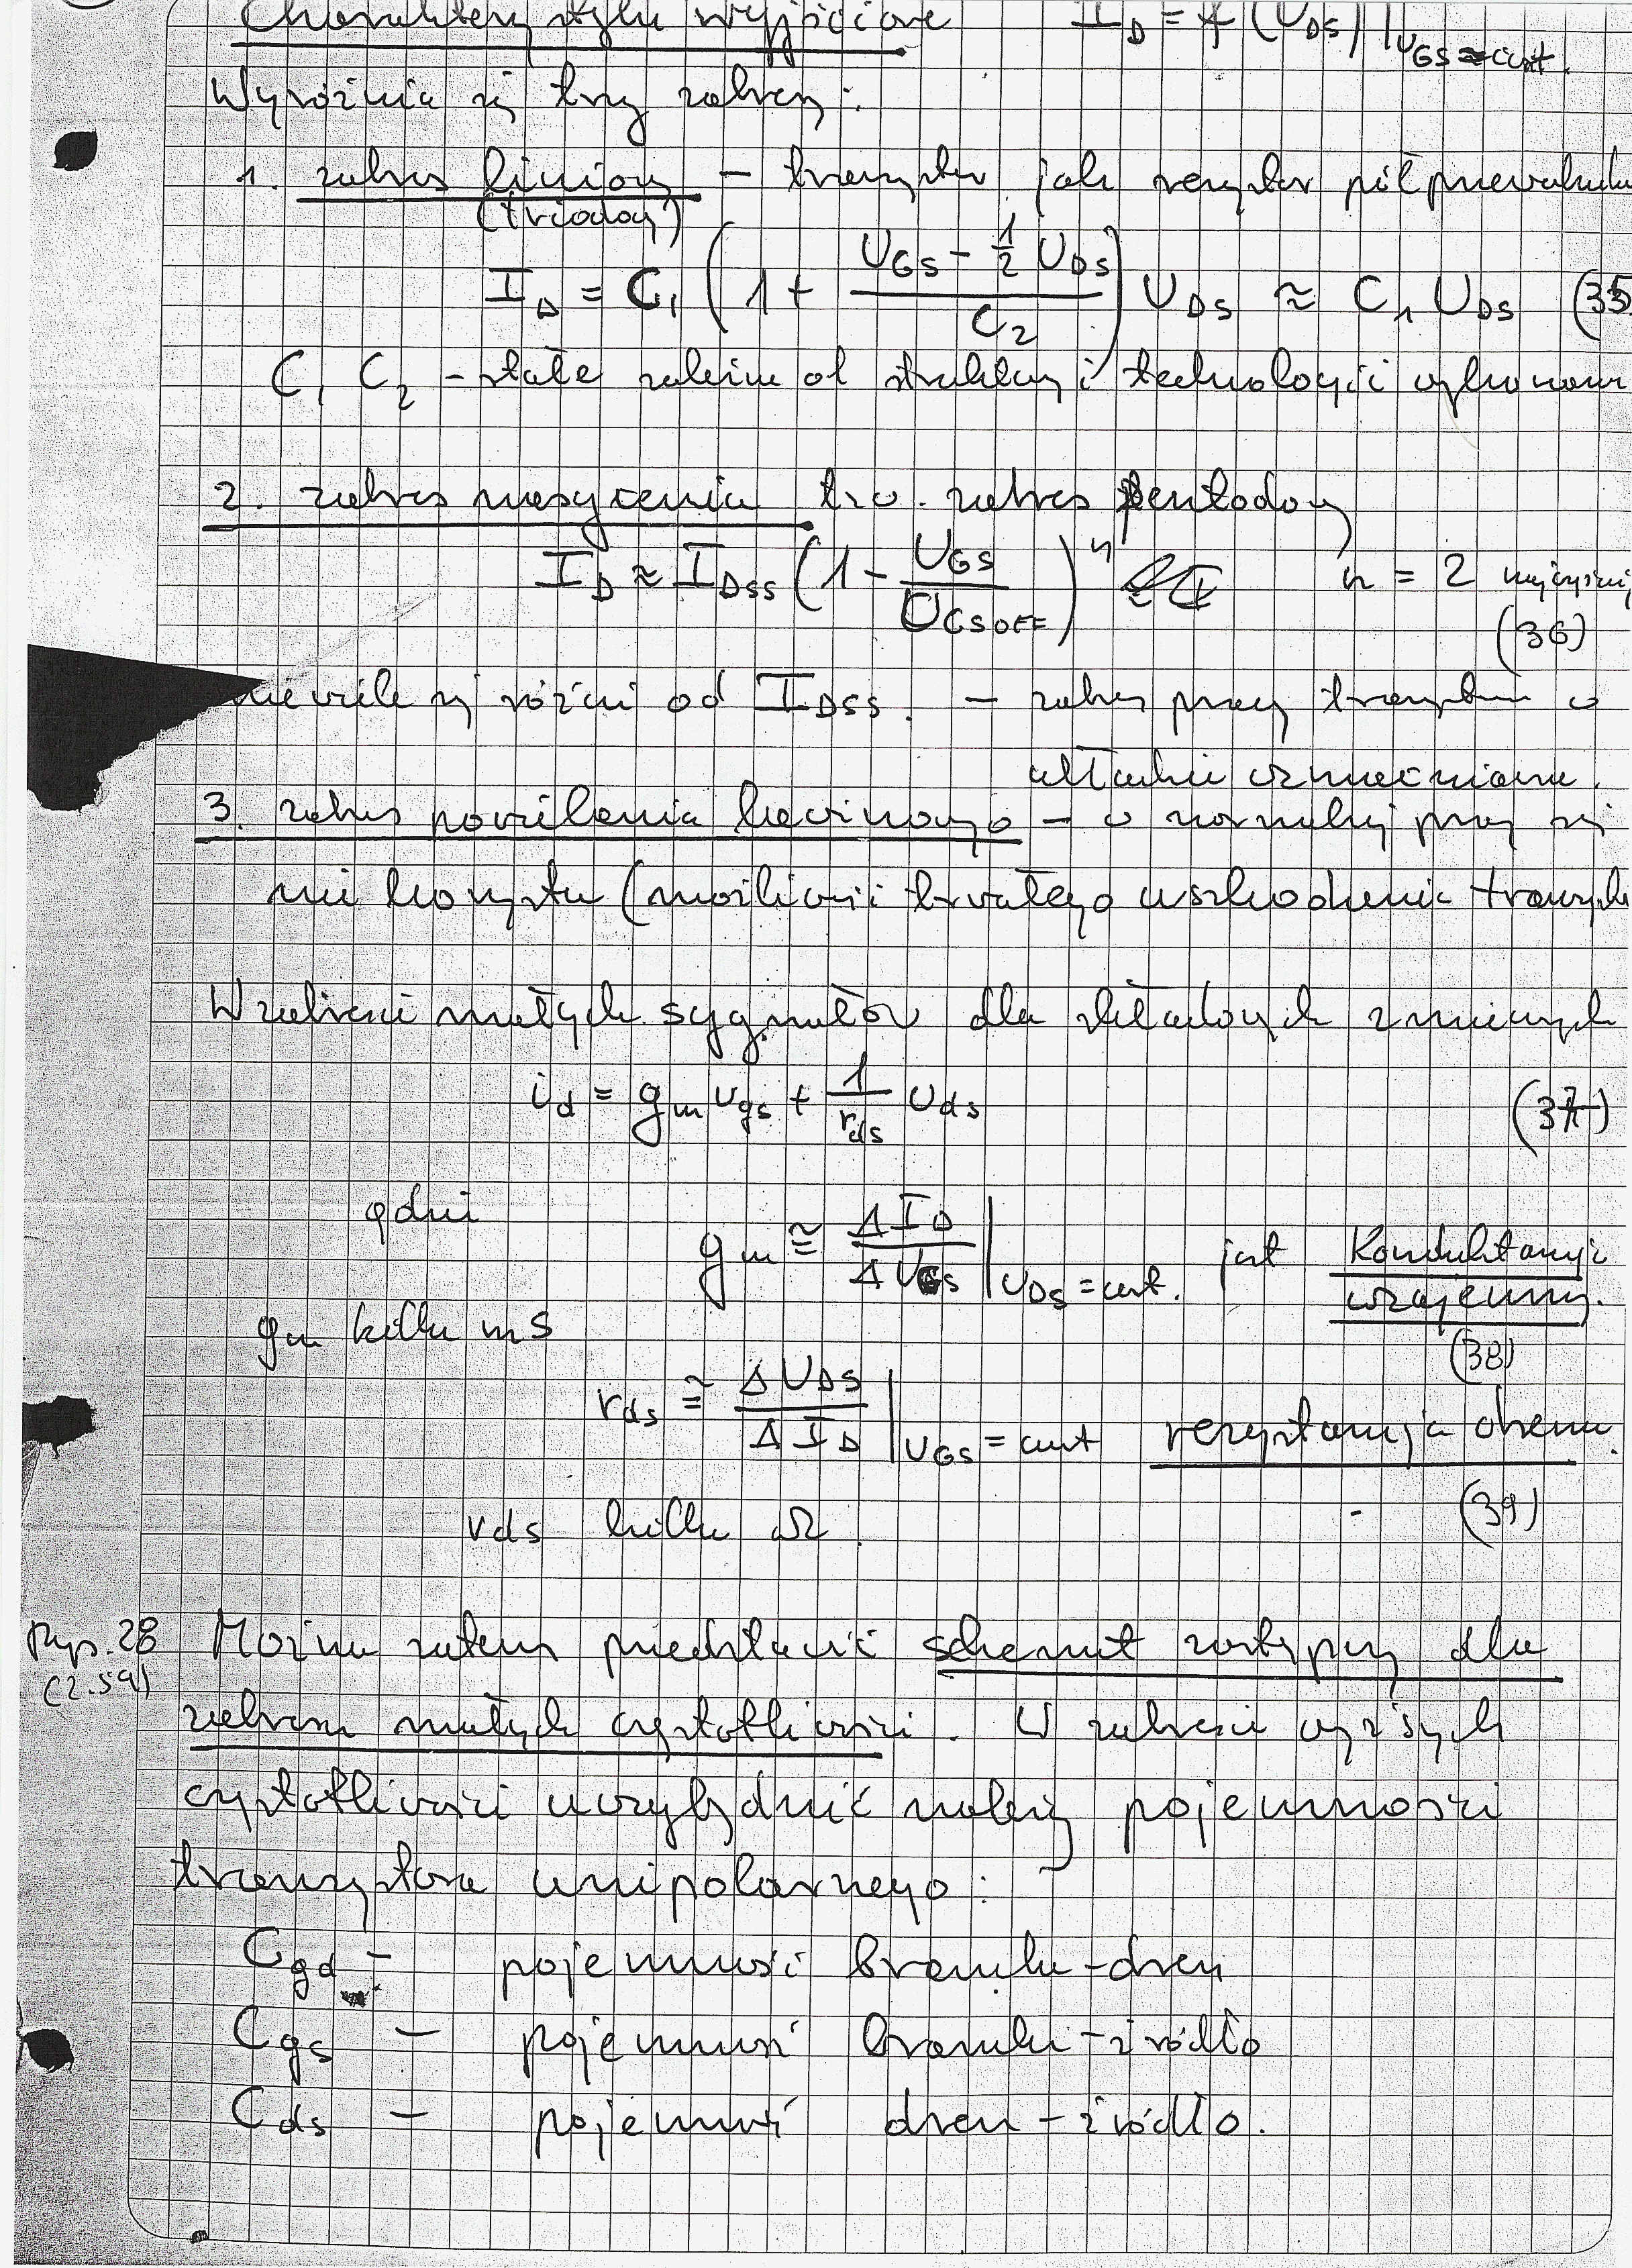 Charakterystyki wyjściowe I_D = f (U_DS) |_{U_GS = const.}
Wyróżnia się trzy zakresy:
1. zakres liniowy – tranzystor jak rezystor półprzewodnik
(triodowy)
I_D = C_1 (1 + (U_GS - 1/2 U_DS) / C_2) U_DS ≈ C_1 U_DS (35
C_1 C_2 – stałe zależne od struktury i technologii wykonania
2. zakres nasycenia tzw. zakres pentodowy
I_D ≈ I_DSS (1 - U_GS / U_GSOFF)^n n = 2 najczęściej
(36)
niewiele się różni od I_DSS. – zakres pracy tranzystora w
układzie wzmacniacza.
3. zakres powielania lawinowego – w normalnej pracy się
nie korzysta (możliwość trwałego uszkodzenia tranzystora
W zakresie małych sygnałów dla składowych zmiennych
i_d = g_m u_gs + 1/r_ds u_ds (37)
gdzie
g_m ≅ ΔI_D / ΔU_GS |_{U_DS = const.} jest Konduktancją
wzajemną.
g_m kilka mS
(38)
r_ds ≅ ΔU_DS / ΔI_D |_{U_GS = const} rezystancja drenu.
r_ds kilka Ω. (39)
Rys. 28 Można zatem przedstawić schemat zastępczy dla
(2.59)
zakresu małych częstotliwości. W zakresie wyższych
częstotliwości uwzględnić należy pojemności
tranzystora unipolarnego:
C_gd – pojemność bramka-dren
C_gs – pojemność bramka-źródło
C_ds – pojemność dren-źródło.